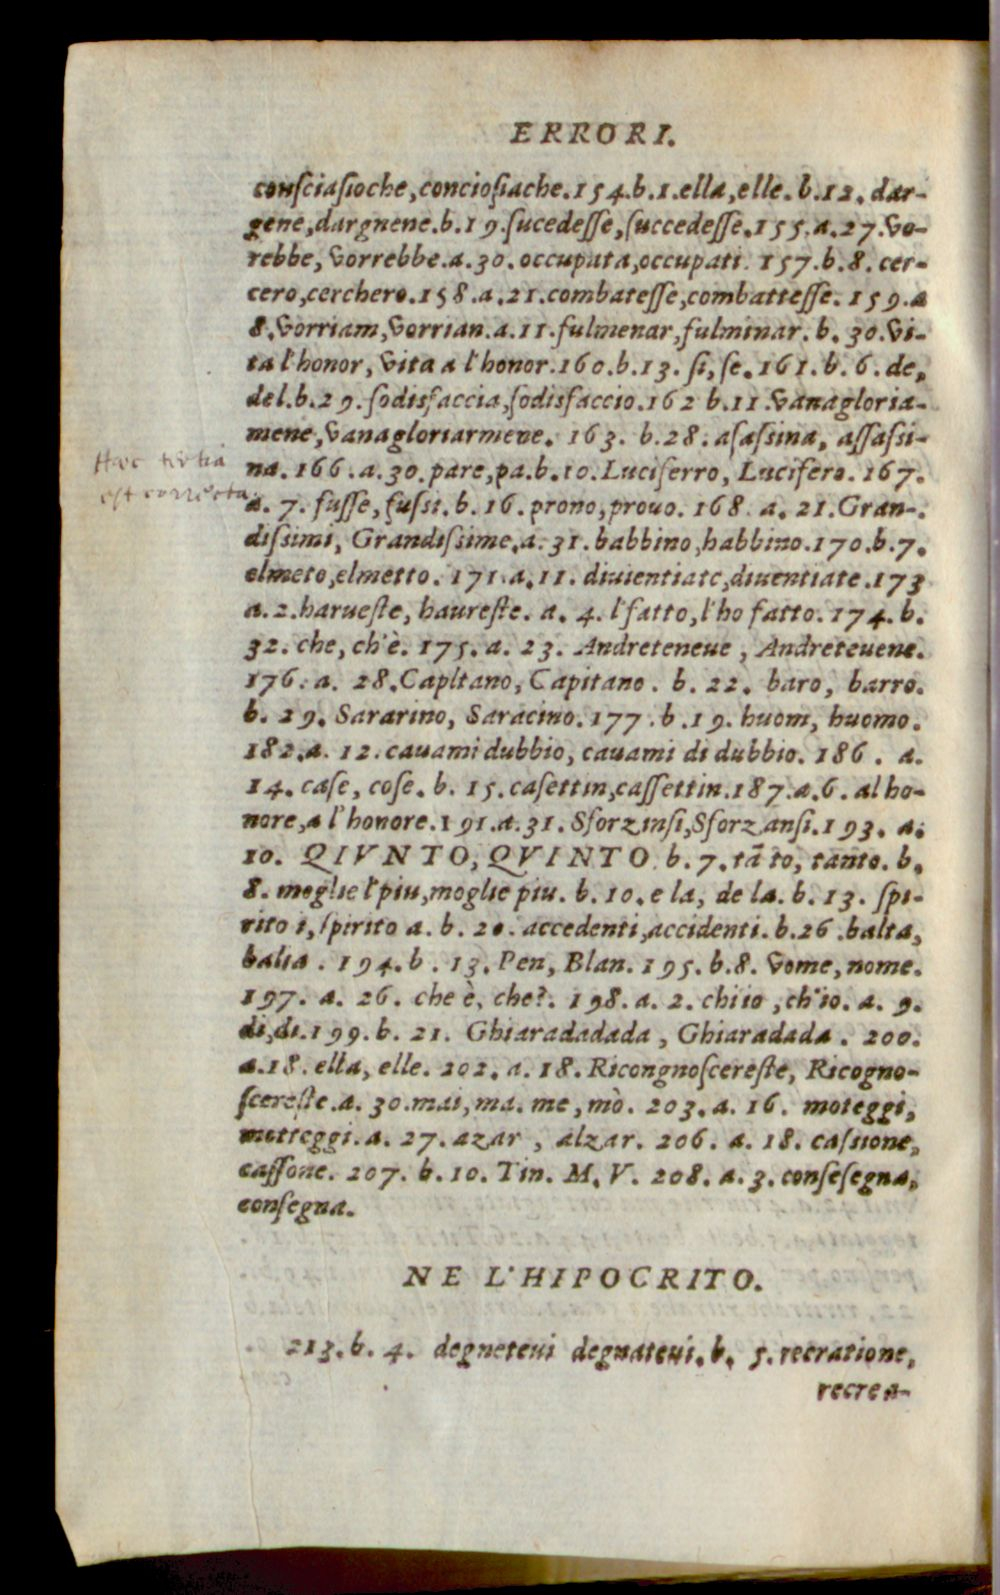 ERRORI.
conſciaſioche, concioſiache. 154. b. 1. ella, elle. b. 12. dar-
gene, dargnene. b. 19. ſucedeſſe, ſuccedeſſe. 155. a. 27. vo-
rebbe, vorrebbe. a. 30. occupata, occupati. 157. b. 8. cer-
cero, cerchero. 158. a. 21. combateſſe, combatteſſe. 159. a
8. vorriam, vorrian. a. 11. fulmenar, fulminar. b. 30. vi-
ta l'honor, vita a l'honor. 160. b. 13. ſi, ſe. 161. b. 6. de,
del. b. 29. ſodisfaccia, ſodisfaccio. 162 b. 11. vanagloria-
mene, vanagloriarmene. 163. b. 28. aſaſsina, aſſaſsi-
Hæc tertia
na. 166. a. 30. pare, pa. b. 10. Luciferro, Lucifero. 167.
est correcta
a. 7. fuſſe, fuſsi. b. 16. prono, prouo. 168. a. 21. Gran-
diſsimi, Grandiſsime. a. 31. babbino, habbino. 170. b. 7.
elmeto, elmetto. 171. a. 11. diuientiate, diuentiate. 173
a. 2. harueſte, haureſte. a. 4. l'fatto, l'ho fatto. 174. b.
32. che, ch'è. 175. a. 23. Andreteneue, Andreteuene.
176. a. 28. Capltano, Capitano. b. 22. baro, barro.
b. 29. Sararino, Saracino. 177. b. 19. huom, huomo.
182. a. 12. cauami dubbio, cauami di dubbio. 186. a.
14. caſe, coſe. b. 15. caſettin, caſſettin. 187. a. 6. al ho-
nore, a l'honore. 191. a. 31. Sforzinſi, Sforzanſi. 193. a.
10. QIVNTO, QVINTO. b. 7. tā to, tanto. b.
8. moglie l'piu, moglie piu. b. 10. e la, de la. b. 13. ſpi-
rito i, ſpirito a. b. 20. accedenti, accidenti. b. 26. balta,
balia. 194. b. 13. Pen, Blan. 195. b. 8. vome, nome.
197. a. 26. che è, che?. 198. a. 2. chiio, ch'io. a. 9.
di, di. 199. b. 21. Ghiaradadada, Ghiaradada. 200.
a. 18. ella, elle. 202. a. 18. Ricongnoſcereſte, Ricogno-
ſcereſte. a. 30. mai, ma. me, mò. 203. a. 16. moteggi,
motteggi. a. 27. azar, alzar. 206. a. 18. caſsione,
caſſone. 207. b. 10. Tin. M. V. 208. a. 3. conſeſegna,
conſegna.
NE L'HIPOCRITO.
213. b. 4. degneteui degnateui. b. 5. recratione,
recrea-